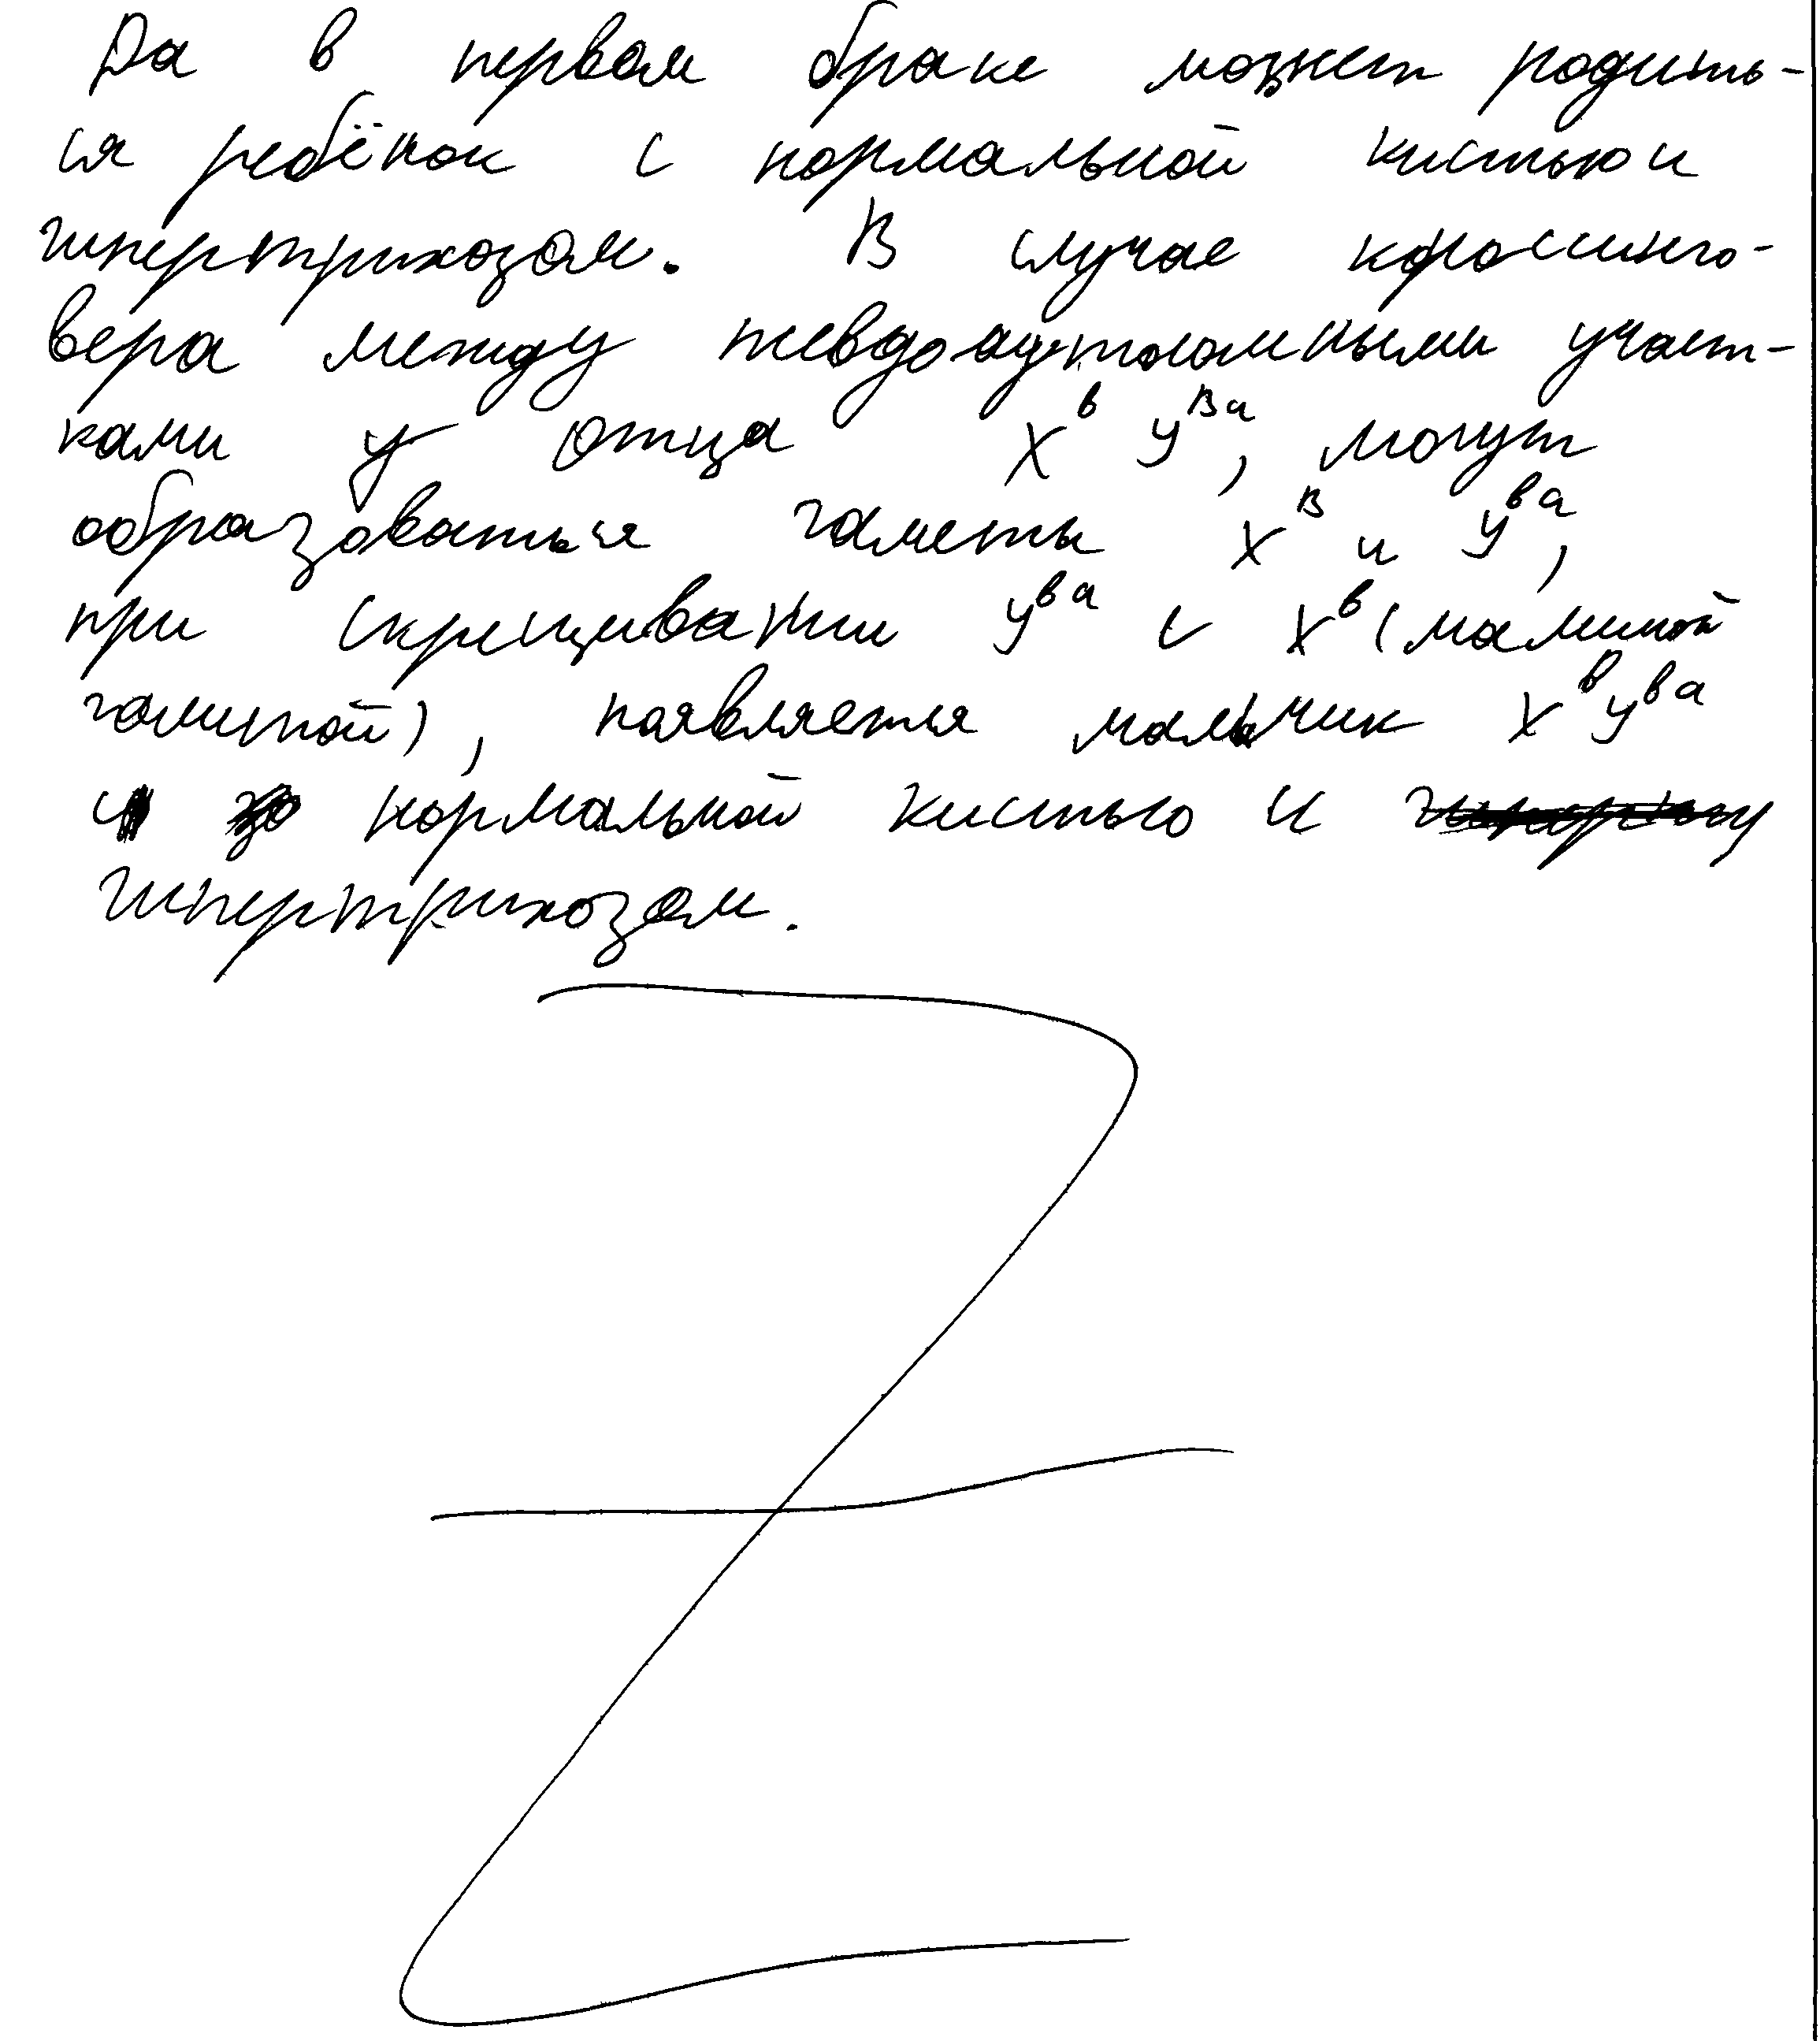 Да в первом браке может родить-
ся ребёнок с нормальной кистью и
гипертрихозом. В случае кроссинго-
вера между псевдоаутосомными участ-
ками у отца X^b Y^Ba, могут
образоваться гаметы X^B и Y^ba,
при скрещивании Y^ba с X^b (маминой
гаметой), появляется мальчик X^b Y^ba
с нормальной кистью и
гипертрихозом.